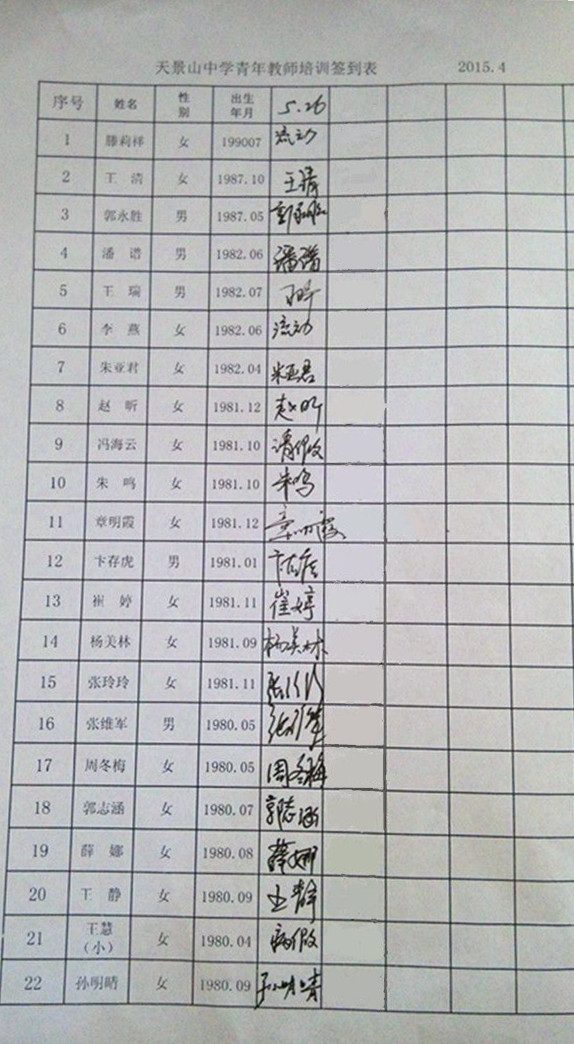 天景山中学青年教师培训签到表 2015.4
序号 姓名 性别 出生年月 5.26
1 滕莉祥 女 199007 流动
2 王 清 女 1987.10 王清
3 郭永胜 男 1987.05 郭永胜
4 潘 谱 男 1982.06 潘谱
5 王 瑞 男 1982.07
6 李 燕 女 1982.06 流动
7 朱亚君 女 1982.04 朱亚君
8 赵 昕 女 1981.12 赵昕
9 冯海云 女 1981.10 请假
10 朱 鸣 女 1981.10 朱鸣
11 章明霞 女 1981.12 章明霞
12 卞存虎 男 1981.01 卞存虎
13 崔 婷 女 1981.11 崔婷
14 杨美林 女 1981.09 杨美林
15 张玲玲 女 1981.11 张玲玲
16 张维军 男 1980.05 张维军
17 周冬梅 女 1980.05 周冬梅
18 郭志涵 女 1980.07 郭志涵
19 薛 娜 女 1980.08 薛娜
20 王 静 女 1980.09 王静
21 王慧（小） 女 1980.04 病假
22 孙明晴 女 1980.09 孙明晴